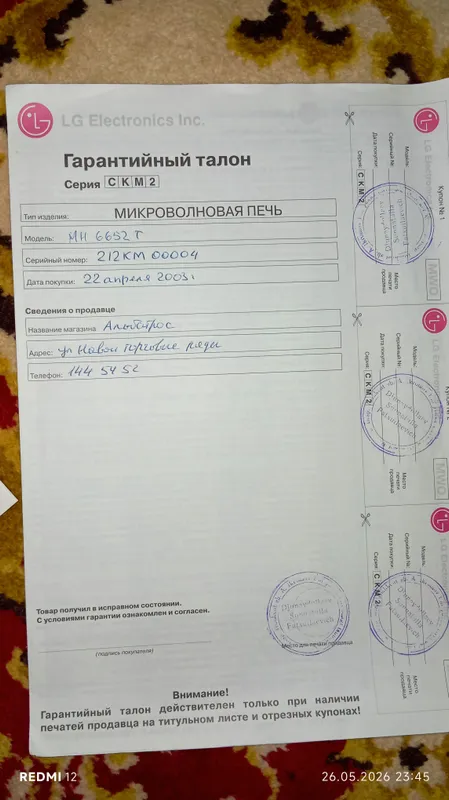 LG Electronics Inc.
Гарантийный талон
Серия СКМ2
Тип изделия: МИКРОВОЛНОВАЯ ПЕЧЬ
Модель: МН 6652 Т
Серийный номер: 212КМ 00004
Дата покупки: 22 апреля 2003г
Сведения о продавце
Название магазина Альбатрос
Адрес: ул Навои Торговые ряды
Телефон: 144 54 52
Товар получил в исправном состоянии.
С условиями гарантии ознакомлен и согласен.
(подпись покупателя)
Место для печати продавца
Внимание!
Гарантийный талон действителен только при наличии
печатей продавца на титульном листе и отрезных купонах!
LG Electronics
Купон № 1
Модель:
Серийный №:
Дата покупки:
Серия: СКМ2
Место печати продавца
MWO
LG Electronics
Модель:
Серийный №:
Дата покупки:
Серия: СКМ2
Место печати продавца
MWO
LG Electronics
Модель:
Серийный №:
Дата покупки:
Серия: СКМ2
Место печати продавца
REDMI 12
26.05.2026 23:45